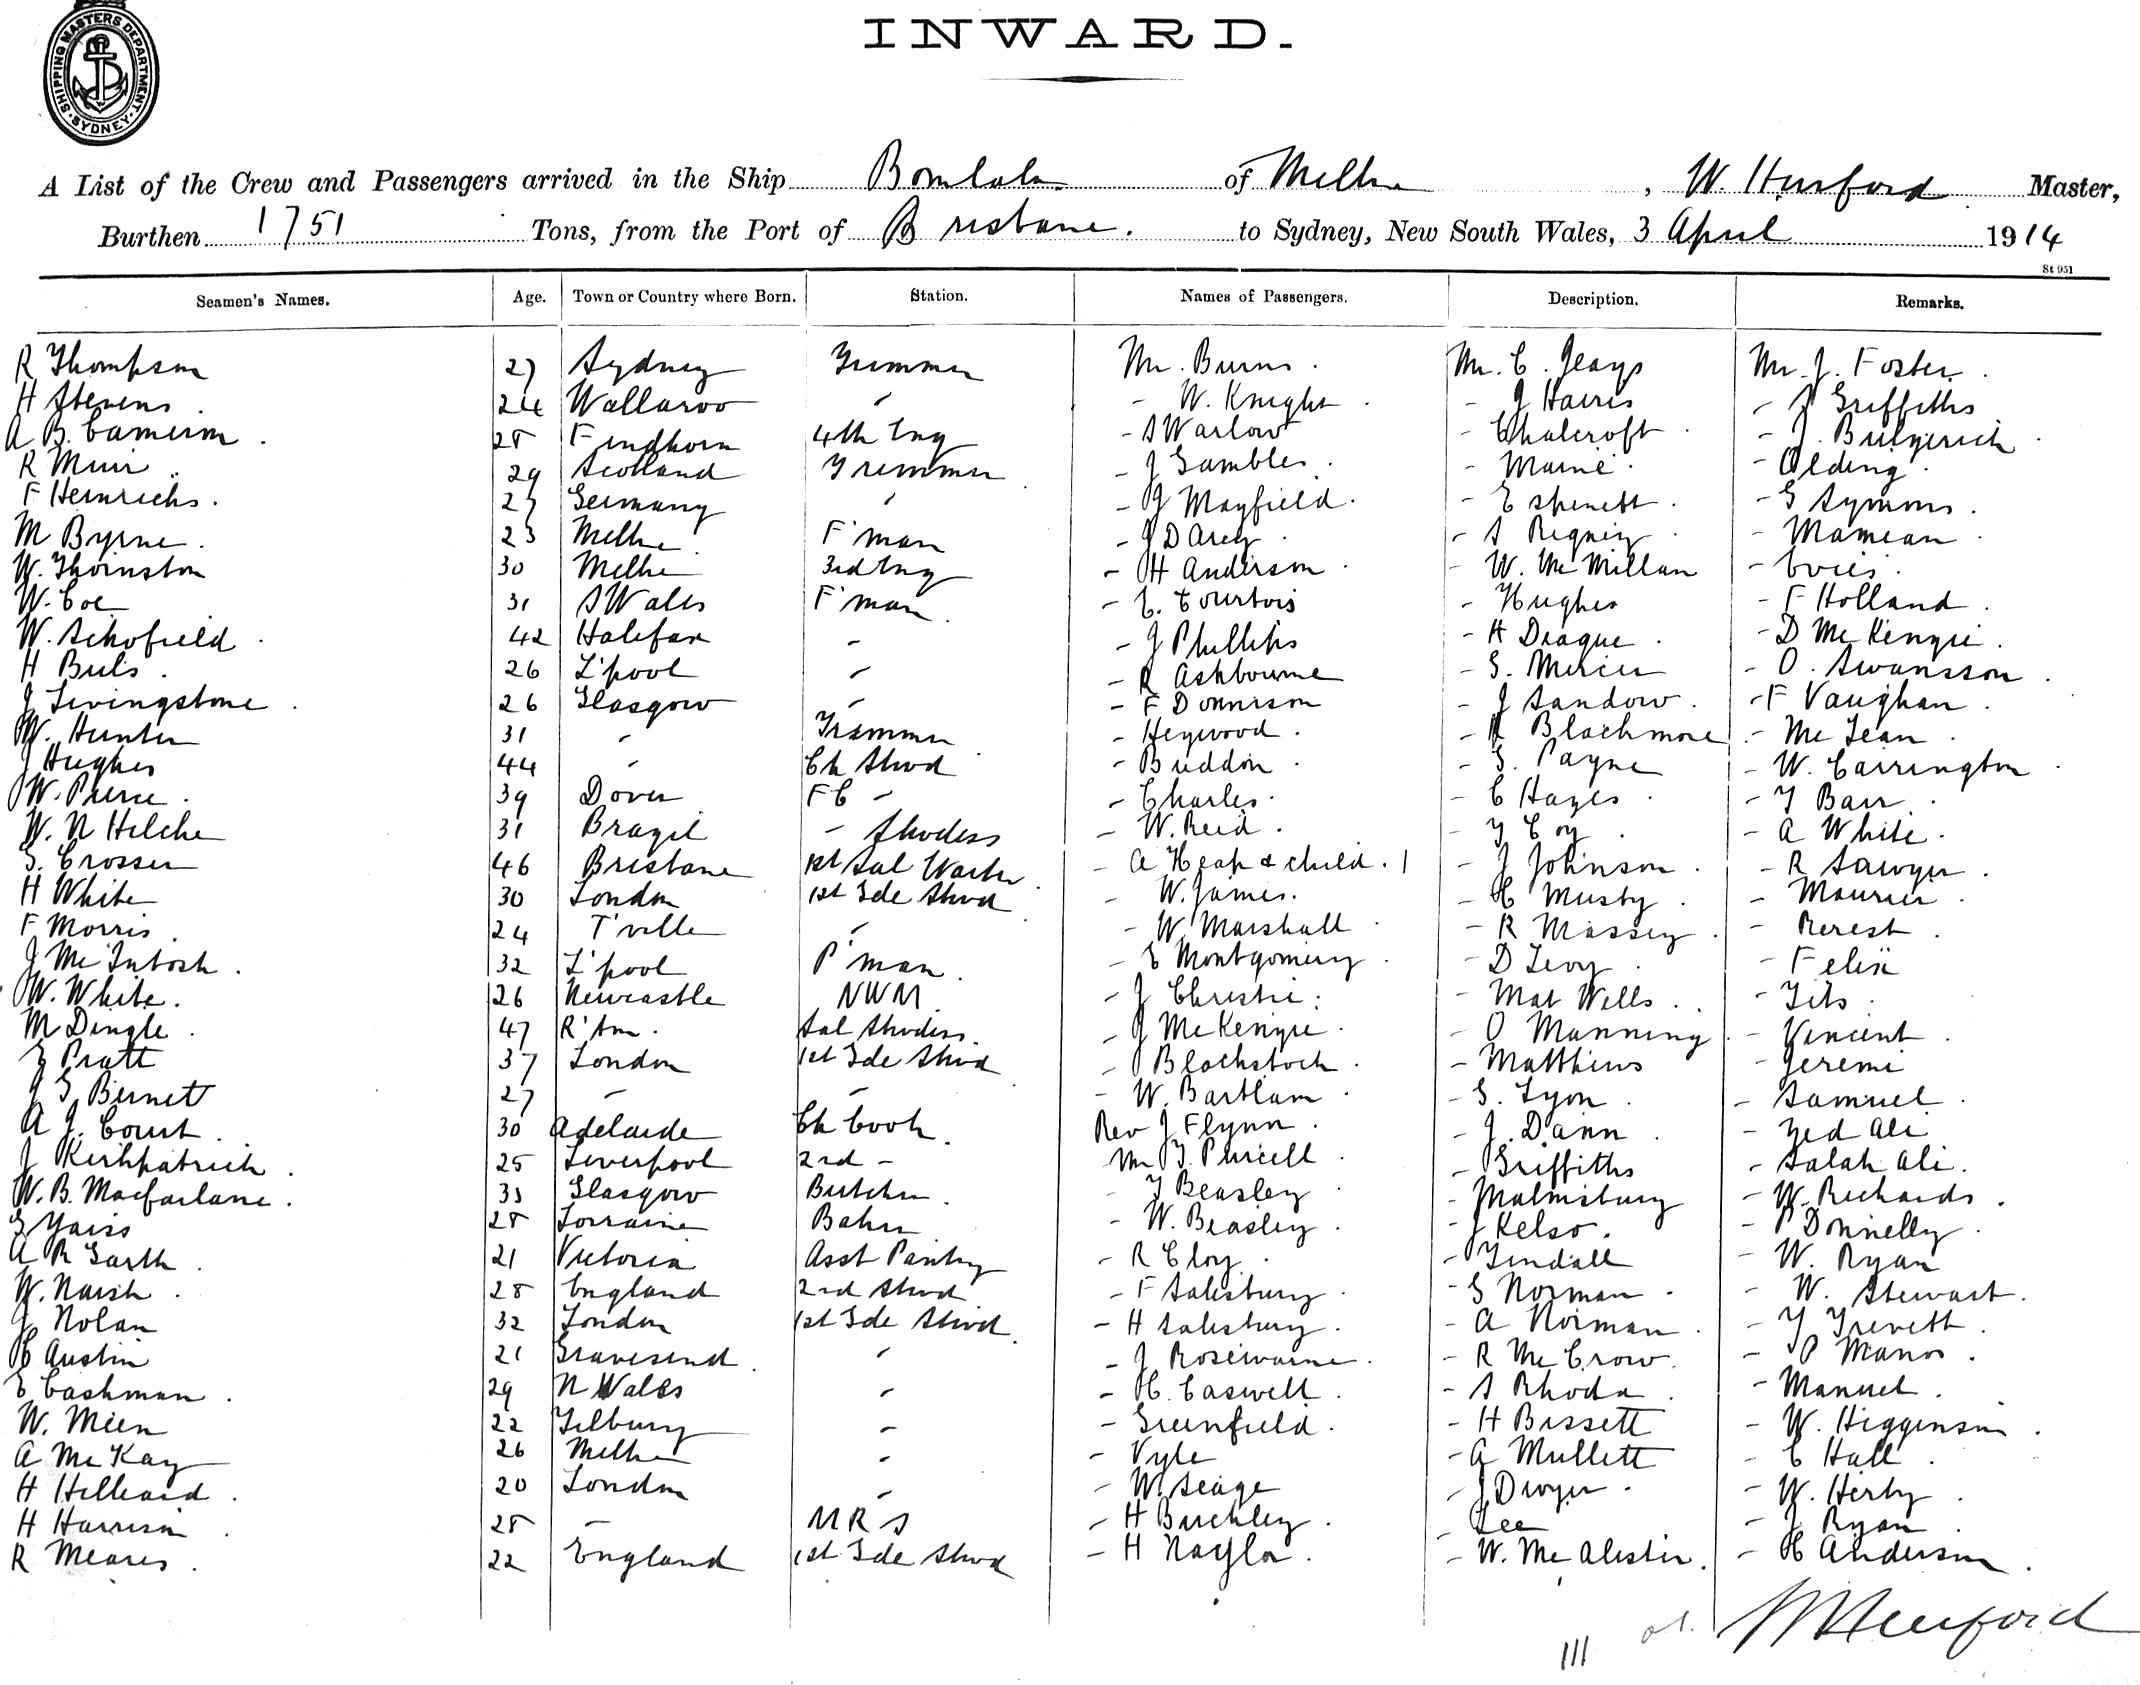 SHIPPING MASTERS DEPARTMENT · SYDNEY ·
INWARD.
A List of the Crew and Passengers arrived in the Ship Bombala of Melbne, W. Hurford Master,
Burthen 1751 Tons, from the Port of Brisbane. to Sydney, New South Wales, 3 April 1914
St 951
Seamen's Names. Age. Town or Country where Born. Station. Names of Passengers. Description. Remarks.
R Thompson 27 Sydney Trimmer Mr. Burns. Mr. C. Jeays Mr. J. Foster.
H Stevens. 24 Wallaroo " - W. Knight. - J Harris - Griffiths
A B. Cameron. 28 Findhorn 4th Eng - S Warlow - Chalcroft. - J.
R Muir. 29 Scotland Trimmer - J Gambles. - Maine. - Olding.
F Heinrichs. 27 Germany " - J Mayfield. - E Shenett. - G Symons.
M Byrne. 23 Melbne. F'man - J D Arcy. - S Regney. - Mamean.
W. Thornston 30 Melbne 3rd Eng - H Anderson. - W. McMillan -
W. Coe 31 S Wales F'man. - C. Courtois - Hughes - F Holland.
W. Schofield. 42 Halifax " - J Phillips - H Drague. - D McKenzie.
H Buls. 26 L'pool " - R Ashbourne - G. Mercer - O. Swansson.
J Livingstone. 26 Glasgow " - F Donnison - J Sandow. - F Vaughan.
W. Hunter 31 " Trimmer - Heywood. - Blackmore - McLean.
J Hughes 44 " Ch Stwd - Buddon. - G. Payne - W. Carrington.
W. Pierce. 39 Dover FC " - Charles. - C Hayes. - T Barr.
W. N Hilche 31 Brazil - Stwdess - W. Reid. - T Coy. - A White.
G. Crosser 46 Brisbane 1st Sal Waiter. - A Heap & child. 1 - J Johnson. - R Sawyer.
H White 30 London 1st Sde Stwd. - W. James. - H Musty. - Maurier.
F Morris. 24 T'ville " - W. Marshall. - R Massey. - Rerest.
J McIntosh. 32 L'pool P'man. - E Montgomery. - D Levy. - Felix
W. White. 26 Newcastle NWM - J Christie. - Mat Wells. - Tits.
M Dingle. 47 R'ton. Sal Stwdess. - J McKenzie. - O Manning. - Vincent.
E Pratt 37 London 1st Sde Stwd - Blackstock. - Matthews - Jeremi
J G. Bennett 27 " " - W. Bartlam. - G. Lyon. - Samuel.
A J. Court. 30 Adelaide Ch Cook. Rev J Flynn. - J. Dann. - Zed Ali
J Kirkpatrick. 25 Liverpool 2nd - Mr T. Purcell. - Griffiths - Salah Ali.
W. B. Macfarlane. 33 Glasgow Butcher. - T Beasley. - Malmsbury - W. Richards.
G Yaiss 28 Lorraine Baker - W. Beasley. - J Kelso. - P Donnelly.
A R Garth. 21 Victoria Asst Pantry - R Cloy. - Tindall - W. Ryan
W. Narsh. 28 England 2nd Stwd - F Salisbury. - G Norman. - W. Stewart.
J Nolan 32 London 1st Sde Stwd. - H Salisbury. - A Norman. - T Trevett.
H Austin 21 Gravesend. " - J Rosewarne. - R McCrow. - P Manos.
E Cashman. 29 N Wales " - H. Caswell. - S Rhoda. - Manuel.
W. Mien 22 Tilbury " - Greenfield. - H Bissett - W. Higginson.
A McKay 26 Melbne " - Vyle - A Mullett - C Hall.
H Hilleard. 20 London " - W. Seage - J Dwyer. - W. Herby.
H Harrison. 28 " M R S - H Buckley. - Lee - J Ryan.
R Meares. 22 England 1st Sde Stwd - H Naylor. - W. McAlister. - H Anderson.
111
W Hurford